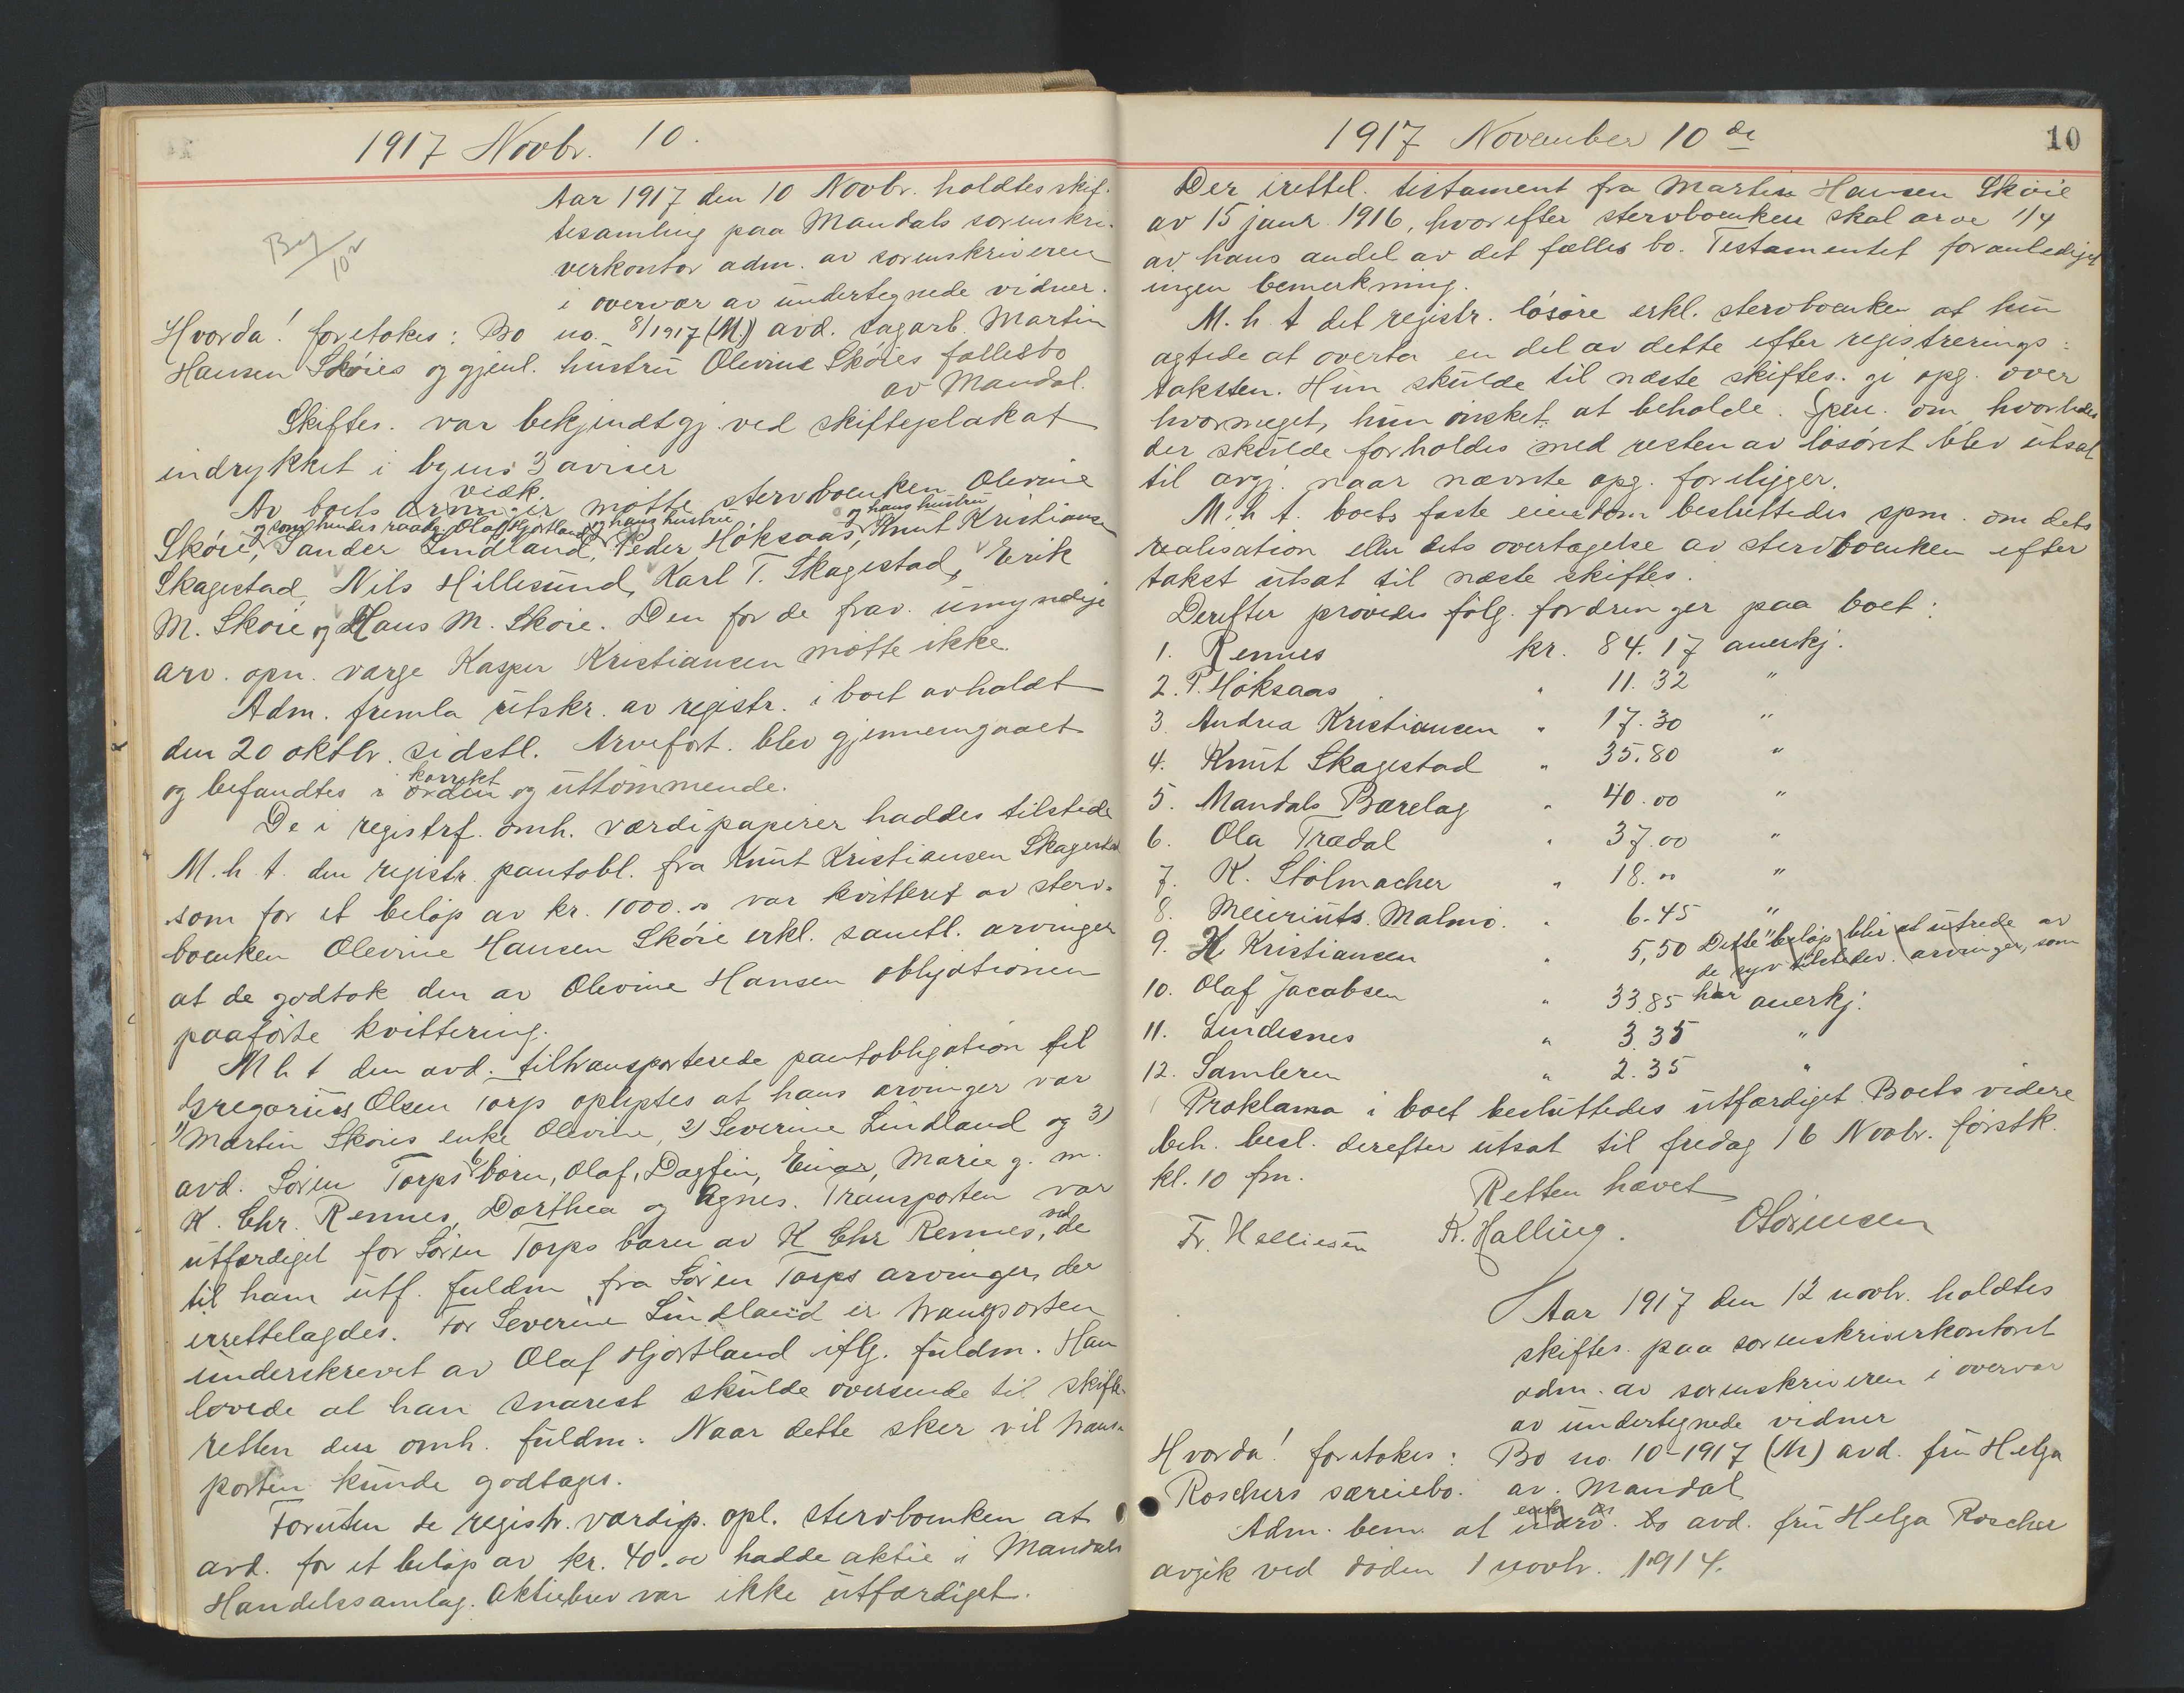 1917 Novbr. 10.
Aar 1917 den 10 Novbr. holdtes skif-
tesamling paa Mandals sorenskri-
verkontor adm. av sorenskriveren
i overvær av undertegnede vidner.
Hvorda! foretokes: Bo no. 8/1917 (M) avd. sagarb. Martin
Hansen Skøies og gjenl. hustru Olevine Skøies fællesbo
av Mandal.
Skiftes. var bekjendtgj. ved skifteplakat
indrykket i byens 3 aviser
vedk.
Av boets arvinger møtte stervboenken Olevine
og som hendes raadg. Olaf Hjortland og hans hustru og hans hustru
Skøie, Sander Lindland, Peder Høksaas, Knut Kristiansen
Skagestad, Nils Hillesund, Karl T. Skagestad, Erik
M. Skøie og Hans M. Skøie. Den for de frav. umyndige
arv. opn. værge Kasper Kristiansen møtte ikke.
Adm. fremla utskr. av registr. i boet avholdt
den 20 oktbr. sidstl. Arvefort. blev gjennemgaaet
korrekt
og befandtes i orden og uttømmende.
De i registrf. omh. værdipapirer haddes tilstede
M. h. t. den registr. pantobl. fra Knut Kristiansen Skagestad
som for et beløp av kr. 1000.00 var kvitteret av sterv-
boenken Olevine Hansen Skøie erkl. samtl. arvinger
at de godtok den av Olevine Hansen obligationen
paaførte kvittering.
M h t den avd. tiltransporterede pantobligation til
Gregorius Olsen Torp oplystes at hans arvinger var
1) Martin Skøies enke Olevine, 2) Severine Lindland og 3)
avd. Søren Torps 6 børn, Olaf, Dagfin, Einar, Marie g. m.
K. Chr. Rennes, Dorthea og Agnes. Transporten var
utfærdiget for Søren Torps barn av K Chr Rennes, ved de
til ham utf. fuldm fra Søren Torps arvinger, der
irettelagdes. For Severine Lindland er transporten
underskrevet av Olaf Hjortland iflg. fuldm. Han
lovede at han snarest skulde oversende til skifte-
retten den omh. fuldm. Naar dette sker vil trans-
porten kunde godtages.
Foruten de registr. værdip. opl. stervboenken at
avd. for et beløp av kr. 40.00 hadde aktie i Mandals
Handelssamlag. Aktiebrev var ikke utfærdiget.
1917 November 10de
10
Der irettel. testament fra Martin Hansen Skøie
av 15 janr. 1916, hvorefter stervboenken skal arve 1/4
av hans andel av det fælles bo. Testamentet foranlediget
ingen bemerkning.
M. h. t det registr. løsøre erkl. stervboenken at hun
agtede at overta en del av dette efter registrerings-
taksten. Hun skulde til næste skiftes. gi opg. over
hvormeget, hun ønsket at beholde. Spm. om hvorledes
der skulde forholdes med resten av løsøret blev utsat
til avgj. naar nævnte opg. foreligger.
M. h t. boets faste eiendom besluttedes spm. om dets
realisation eller dets overtagelse av stervboenken efter
takst utsat til næste skiftes.
Derefter prøvedes følg. fordringer paa boet:
1. Rennes kr. 84.17 anerkj.
2. P. Høksaas " 11.32 "
3. Andrea Kristiansen " 17.30 "
4. Knut Skagestad " 35.80 "
5. Mandals Bærelag " 40.00 "
6. Ola Trædal " 37.00 "
7. K. Stølmacher " 18.00 "
8. Meieriuts. Malmø. " 6.45 "
9. K. Kristiansen " 5,50 Dette beløp blir at utrede av
de syv tilstedev. arvinger, som
10. Olaf Jacobsen " 33.85 har anerkj.
11. Lindesnes " 3.35 "
12. Samleren " 2.35 "
Proklama i boet besluttedes utfærdiget. Boets videre
beh. besl. derefter utsat til fredag 16 Novbr. førstk.
kl. 10 fm.
Retten hævet
Fr. Helliesen K. Halling. OSørensen
Aar 1917 den 12 novbr. holdtes
skiftes. paa sorenskriverkontoret
adm. av sorenskriveren i overvær
av undertegnede vidner
Hvorda! foretokes: Bo no. 10-1917 (M) avd. fru Helga
Roschers særeiebo. av. Mandal
Adm. bem. at avd. fru Helga Roscher
avgik ved døden 1 novbr. 1914.